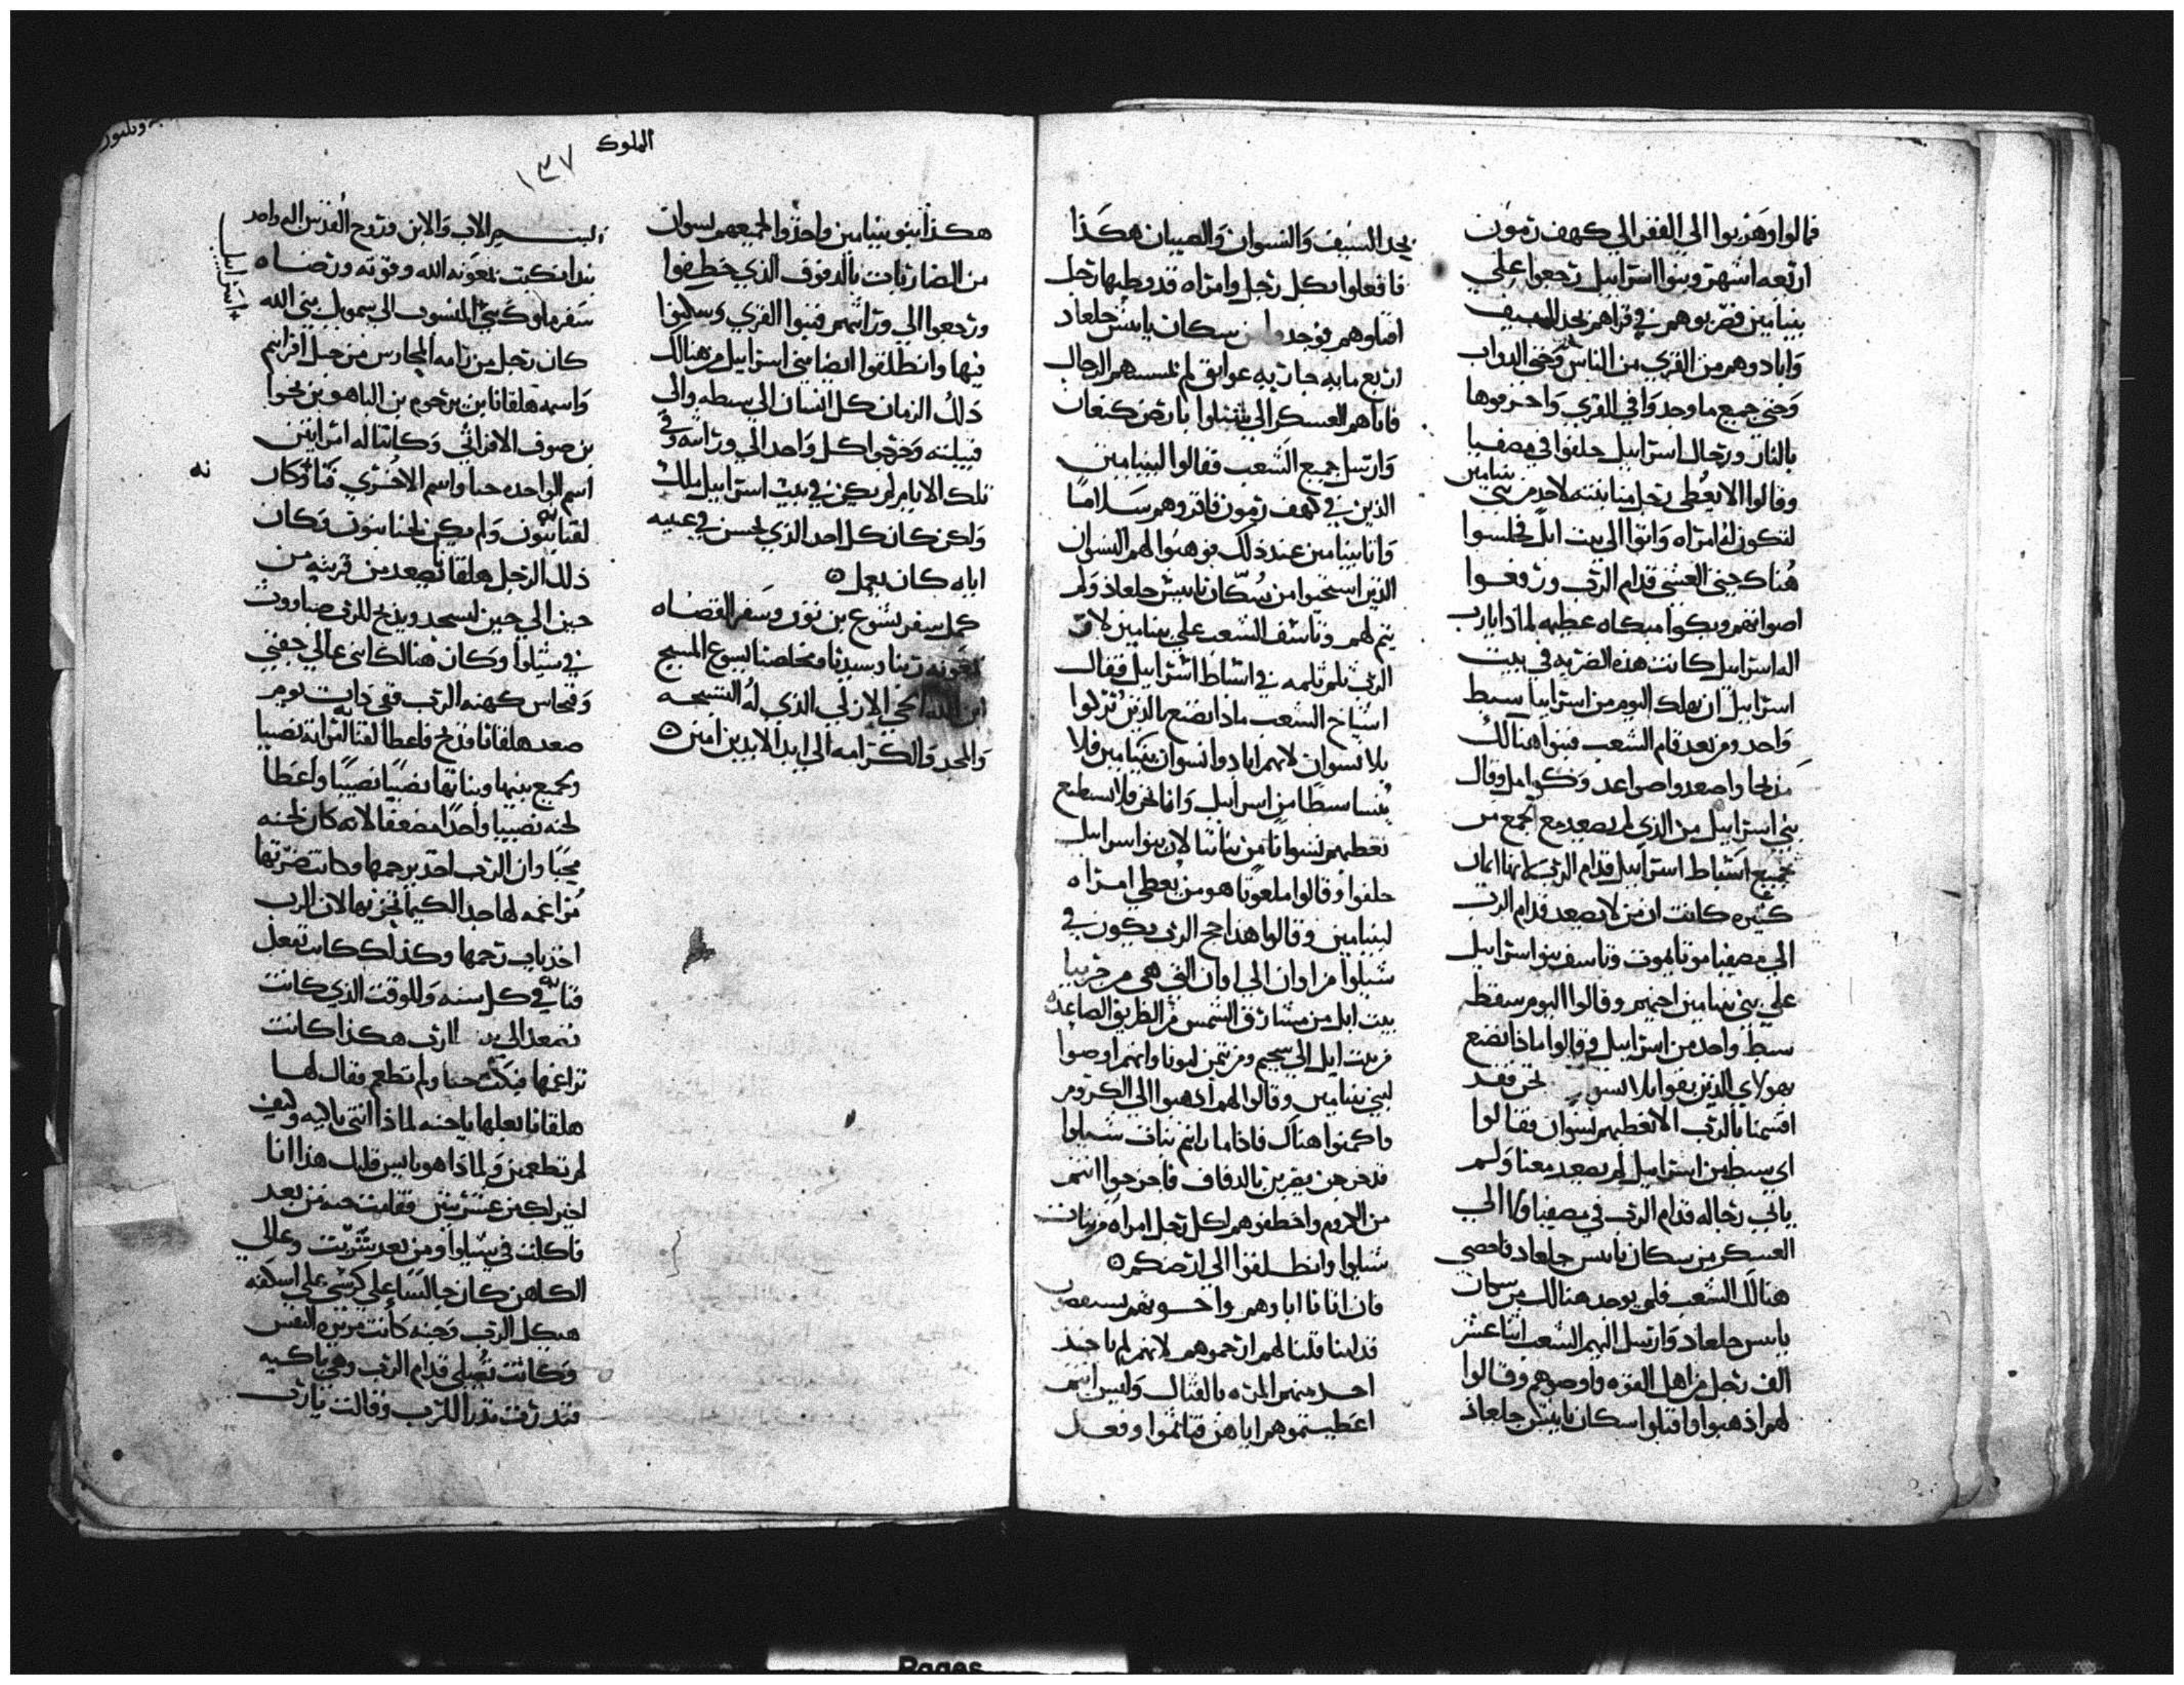 فمالوا وهربوا الي القفر الي كهف رمون
اربعه اشهر وبنوا اسراييل رجعوا علي
بنيامين فضربوهم في قراهم بحد السيف
وابادوهم من القري من الناس وحتي الدواب
وحتي جميع ما وجدوا في القري واحرقوها
بالنار ورجال اسراييل حلفوا في مصفيا
وقالوا الا يعطي رجل منا ابنته لاحد من بني بنيامين
لتكون له امراه واتوا الي بيت ايل فجلسوا
هناك حتي العشي قدام الرب ورفعوا
اصواتهم وبكوا مبكاه عظيمه لماذا يا رب
اله اسراييل كانت هذه الضربه في بيت
اسراييل ان يهلك اليوم من اسراييل سبط
واحد ومن بعد قام الشعب فبنوا هنالك
مذبحا واصعدوا صواعد وكوامل وقال
بني اسراييل من الذي لم يصعد مع الجمع من
جميع اسباط اسراييل قدام الرب لانها ايمان
كثيره كانت ان من لا يصعد قدام الرب
الي مصفيا موتا يموت وتاسف بنوا اسراييل
علي بني بنيامين اخيهم وقالوا اليوم سقط
سبط واحد من اسراييل وقالوا ماذا نصنع
بهولاي الذين بقوا بلا نسوان نحن فقد
اقسمنا بالرب الا نعطيهم نسوان فقالوا
اي سبط من اسراييل لم يصعد معنا ولم
ياتي رجاله قدام الرب في مصفيا ولا الي
العسكر من سكان يابيس جلعاد فاحصي
هنالك الشعب فلم يوجد هنالك من سكان
يابيس جلعاد وارسل اليهم الشعب اثنا عشر
الف رجل من اهل القوه واوصوهم وقالوا
لهم اذهبوا واقتلوا سكان يابيش جلعاد
بحد السيف والنسوان والصبيان هكذا
فافعلوا بكل رجل وامراه قد وطيها رجل
اقتلوهم فوجدوا من سكان يابيش جلعاد
اربع مايه جاريه عواتق لم يمسسهم الرجال
فاتاهم العسكر الي شيلوا بارض كنعان
وارسل جميع الشعب فقالوا لبنيامين
الذين في كهف رمون فاقروهم سلاما
واتا بنيامين عند ذلك فوهبوا لهم النسوان
الذين استحيوا من سكان يابيش جلعاد ولم
يتم لهم وتاسف الشعب علي بنيامين لان
الرب ثلم ثلمه في اسباط اسراييل فقال
اشياخ الشعب ماذا نصنع بالذين تركوا
بلا نسوان لانهم ابادوا نسوان بنيامين فلا
ينسا سبطا من اسراييل وانا نحن فلا نستطيع
نعطيهم نسوانا من بناتنا لان بنوا اسراييل
حلفوا وقالوا ملعونا هو من يعطي امراه
لبنيامين وقالوا هذا حج الرب يكون في
شيلوا من اوان الي اوان التي هي من جربيا
بيت ايل من مشارق الشمس في الطريق الصاعده
من بيت ايل الي سجيم ومن تيمن لبونا وانهم اوصوا
لبني بنيامين وقالوا لهم اذهبوا الي الكروم
فاكمنوا هناك فاذا ما رايتم بنات شيلوا
قد خرجن يضربن بالدفاف فاخرجوا انتم
من الكروم واخطفوهم لكل رجل امراه من بنات
شيلوا وانطلقوا الي ارضكم
فان اتانا اباوهم واخوتهم
قدامنا قلنا لهم ارحموهم لانهم لم ياخذ
احد منهم المره بالقتال وليس انتم
اعطيتموهم اياهن فتاثموا وفعل
الملوك
١٣٧
هكذا بنو بنيامين واخذوا لجميعهم نسوان
من الضاربات بالدفوف الذي خطفوا
ورجعوا الي وراثتهم فبنوا القري وسكنوا
فيها وانطلقوا ايضا بني اسراييل من هنالك
ذلك الزمان كل انسان الي سبطه والي
قبيلته وخرجوا كل واحد الي وراثته وفي
تلك الايام لم يكن في بيت اسراييل ملك
ولكن كان كل احد الذي يحسن في عينيه
اياه كان يعمل
كمل سفر يشوع بن نون وسفر القضاه
بمعونه ربنا وسيدنا ومخلصنا يسوع المسيح
ابن الله الحي الازلي الذي له التسبحه
والمجد والكرامه الي ابد الابدين امين
بسم الاب والابن وروح القدس اله واحد
نبدا نكتب بمعونه الله وقوته ورضاه
سفر ملوك بني المنسوب الي سمويل نبي الله
اسراييل
كان رجل من رامه المحارس من جبل افرايم
واسمه هلقانا بن يرحوم بن الياهو بن نحوا
بن صوف الافراثي وكانتا له امراتين
اسم الواحده حنا واسم الاخري فنا وكان
لفنا بنون ولم يكن لحنا بنون وكان
ذلك الرجل هلقانا يصعد من قريته من
حين الي حين ليسجد ويذبح للرب صباووت
في شيلوا وكان هنالك ابني عالي حفني
وفنحاس كهنه الرب ففي ذات يوم
صعد هلقانا وذبح فاعطا لفنا امراته نصيبا
ولجميع بنيها وبناتها نصيبا نصيبا واعطا
لحنه نصيبا واحدا مضعفا لانه كان لحنه
محبا وان الرب اخذ برحمها وكانت ضرتها
مراغمه لها جدا لكيما تحزنها لان الرب
اخذ باب رحمها وكذلك كانت تفعل
فنا في كل سنه وللوقت الذي كانت
تصعد الي بيت الرب هكذا كانت
تراغمها فبكت حنا ولم تطعم فقال لها
هلقانا بعلها يا حنه لماذا انتي باكيه وكيف
لم تطعمين ولماذا هو يابس قلبك هذا انا
اخير لكي من عشر بنين فقامت حنه من بعد
ما اكلت في شيلوا ومن بعد شربت وعالي
الكاهن كان جالسا علي كرسي علي اسكفه
هيكل الرب وحنه كانت مريره النفس
وكانت تصلي قدام الرب وهي باكيه
فنذرت نذرا للرب وقالت يا رب
Pages